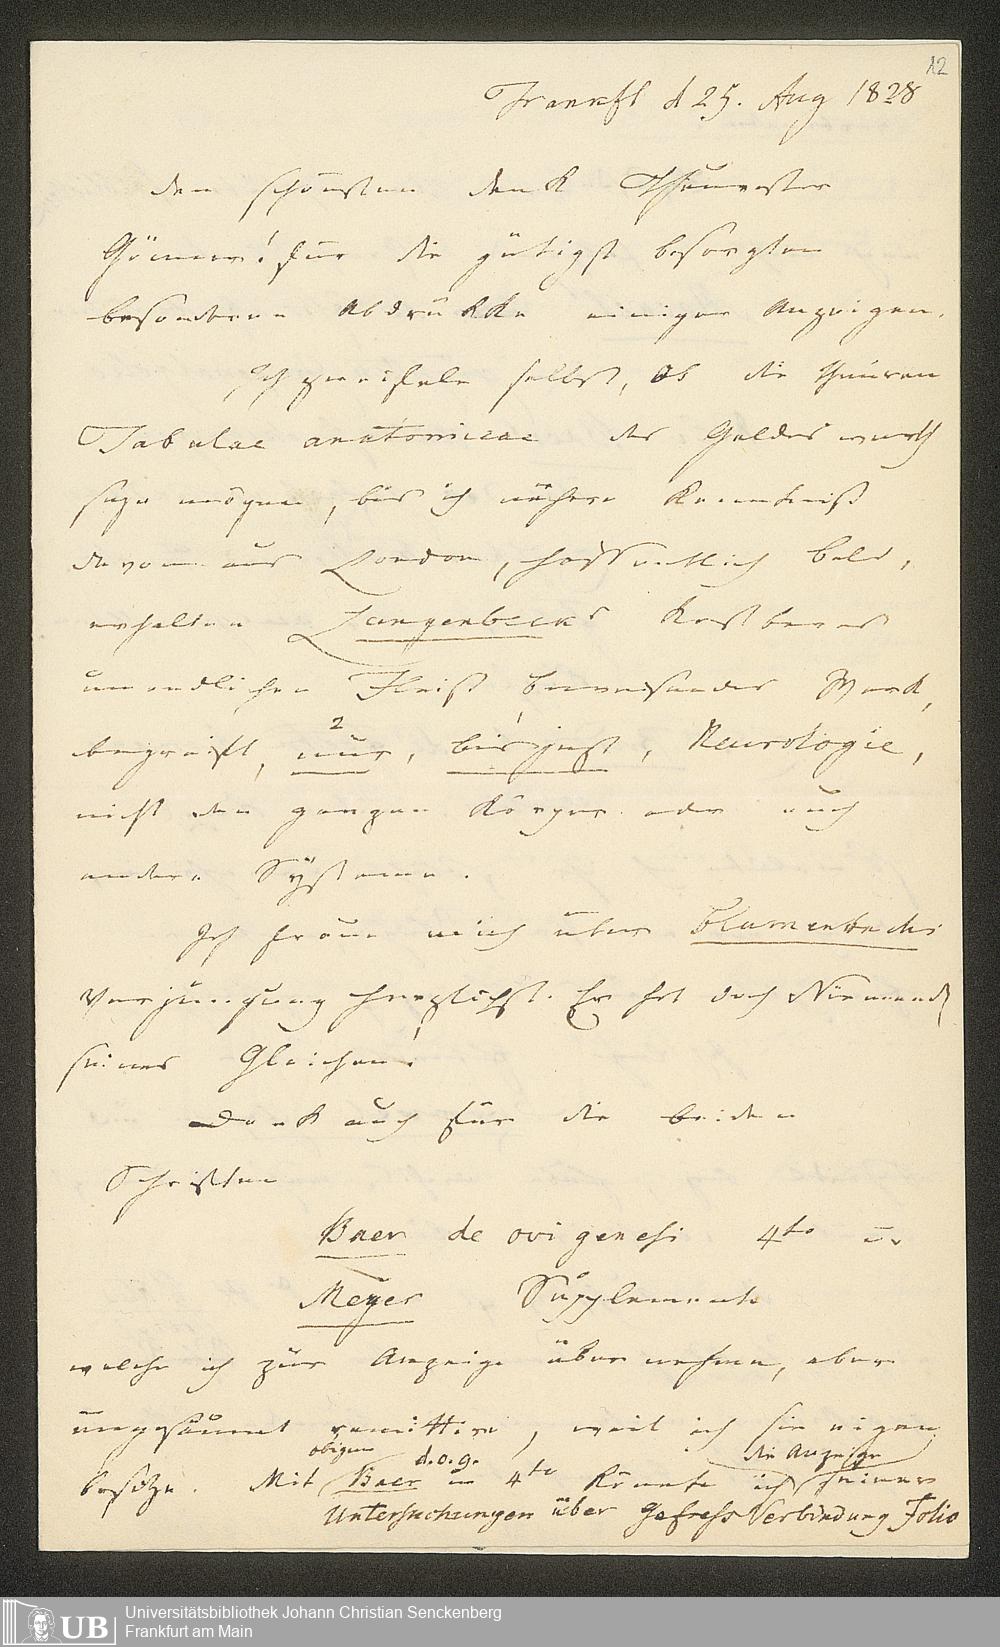 12
Frankft d 25. Aug 1828
den schönsten Dank Theuerster
Gönner! für die gütigst besorgten
besondern Abdrükke einiger Anzeigen.
Ich zweifele selbst, ob die theuren
Tabulae anatomicae des Geldes werth
seyn mögen, bis ich nähere Kenntniß
davon aus London, hoffentlich bald,
erhalten Langenbecks kostbares
unendlichen Fleiß beweisendes Werk,
begreift, nur, 2 bis jezt, Neurologie,
nicht den ganzen Körper oder auch
andere Systeme.
Ich freue mich über Blumenbachs
Verjüngung herzlichst. Er hat doch Niemand
seines Gleichen!
Dank auch für die beiden
Schriften
Baer de ovi genesi 4to u.
Meyer Supplemente
welche ich zur Anzeige übernehme, aber
ungesäumt remittire, weil ich sie eigen
besitze. Mit obigen Baer d. o. g. in 4to könnte ich die Anzeige seiner
Untersuchungen über Gefäss Verbindung Folio
UB Universitätsbibliothek Johann Christian Senckenberg
Frankfurt am Main